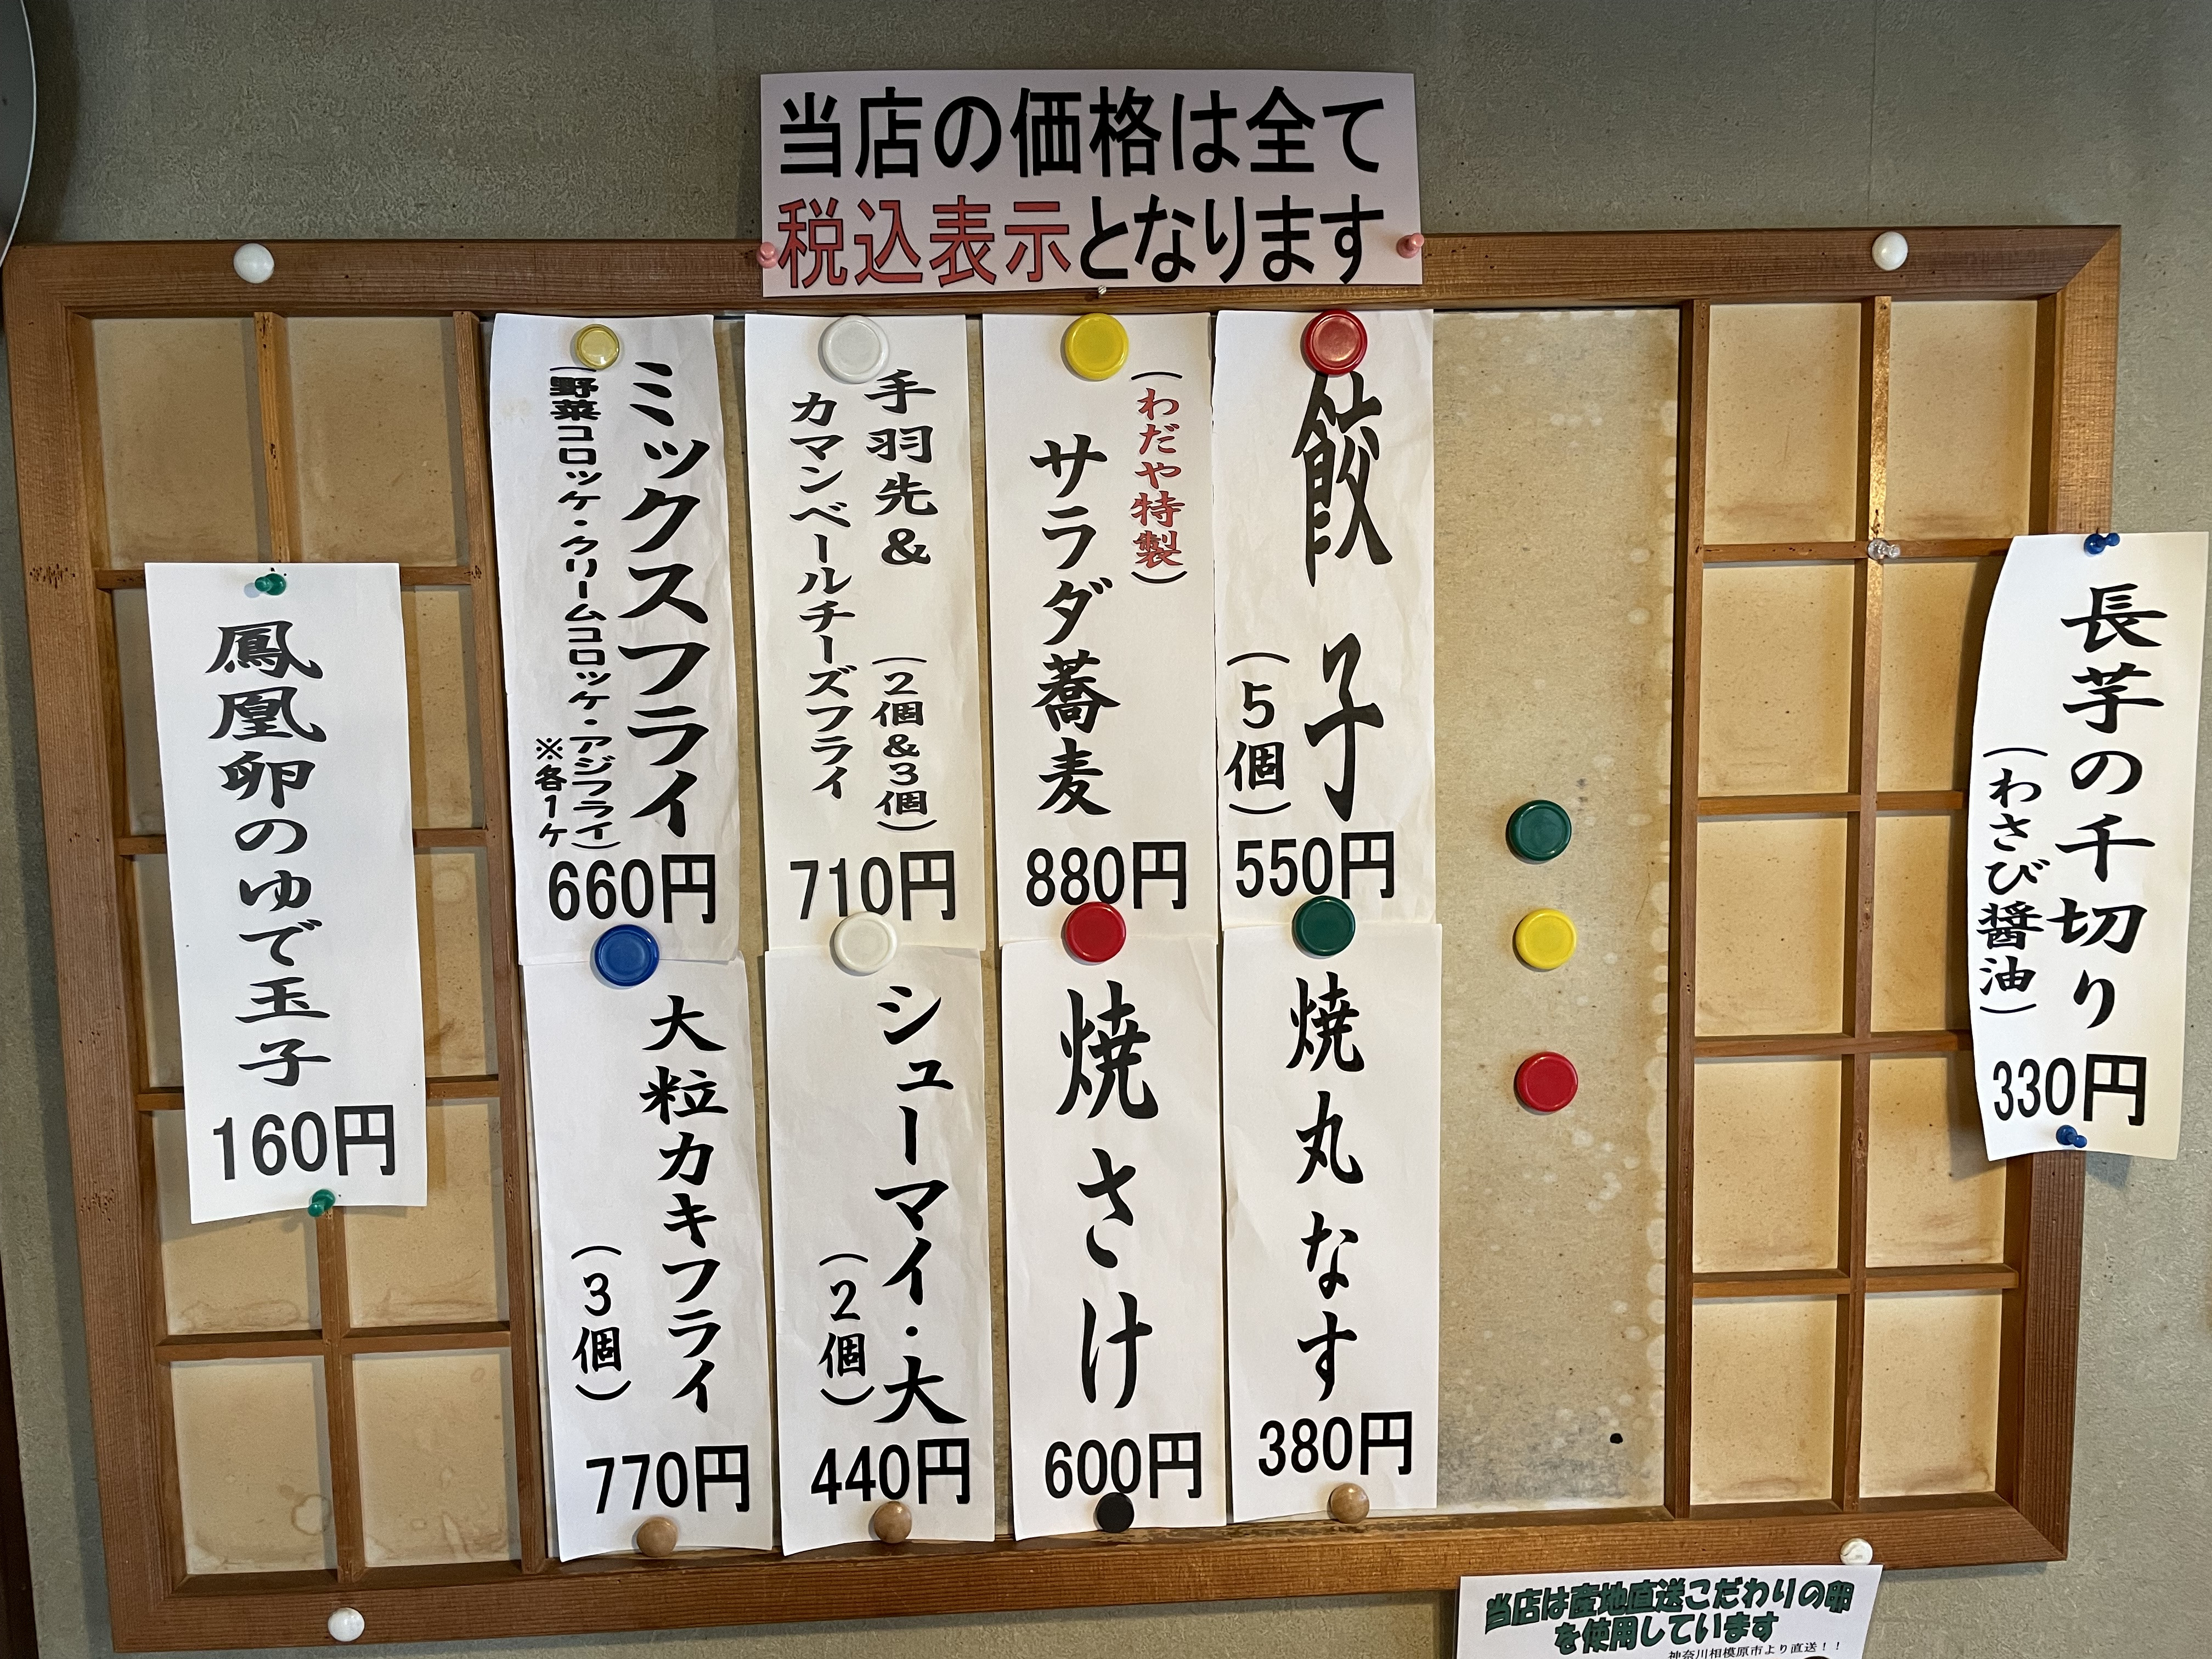 当店の価格は全て
税込表示となります
長芋の千切り
(わさび醤油)
330円
餃子
(5個)
550円
(わだや特製)
サラダ蕎麦
880円
手羽先& (2個&3個)
カマンベールチーズフライ
710円
ミックスフライ
(野菜コロッケ・クリームコロッケ・アジフライ)
※各1ケ
660円
焼丸なす
380円
焼さけ
600円
シューマイ・大
(2個)
440円
大粒カキフライ
(3個)
770円
鳳凰卵のゆで玉子
160円
当店は産地直送こだわりの卵
を使用しています
神奈川相模原市より直送!!